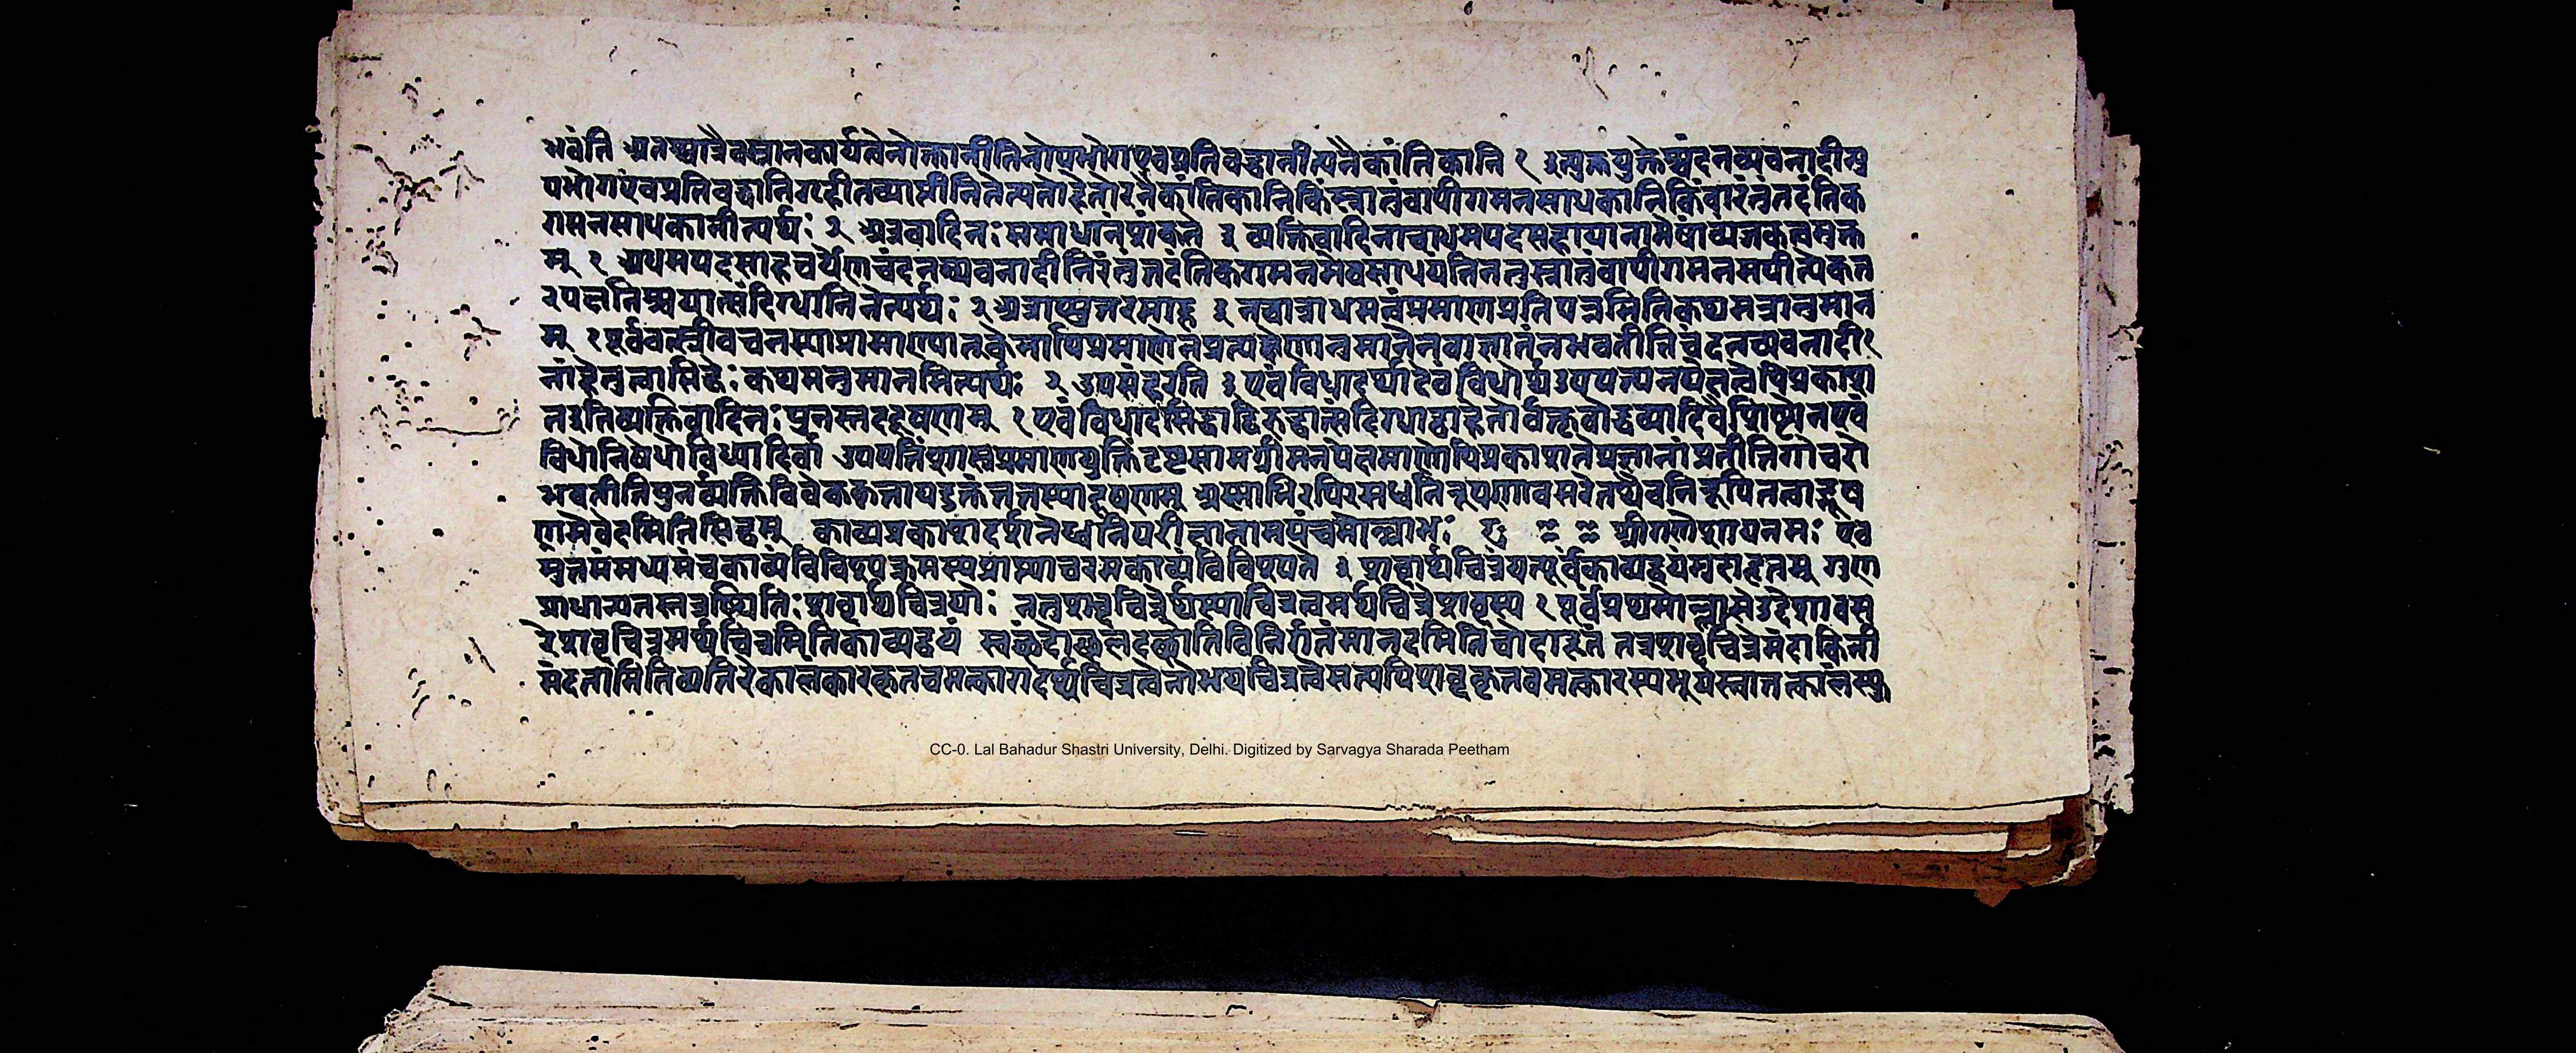 भवंति अतश्चात्रैवस्नानकार्यत्वेनोक्तानीतिनोपभोगएवप्रतिबद्धानीत्यनैकांतिकानि १ इत्युक्तयुक्तेश्चंदनच्यवनादीन्यु
पभोगएवप्रतिबद्धानिगृहीतव्यानीतितेत्यतोहेतोरनैकांतिकानिकिंस्नातुंवापीगमनसाधकानिकिंवारंतुंतदंतिक
गमनसाधकानीत्यर्थः २ अत्रवादिनः समाधानंशंकते ३ व्यक्तिवादिनाचाधमपदसहायानामेषांव्यंजकत्वमुक्त
म् १ अधमपदसाहचर्येणचंदनच्यवनादीनिरंतुंतदंतिकगमनमेवसाधयंतिनतुस्नातुंवापीगमनमपीत्येकत
रपक्षनिश्चयात्संदिग्धानिनेत्यर्थः २ अत्राप्युत्तरमाह ३ नचात्राधमत्वंप्रमाणप्रतिपन्नमितिकथमत्रानुमान
म् १ पूर्ववत्स्त्रीवचनस्याप्रामाण्यात्तवकेनापिप्रमाणेनप्रत्यक्षेणानुमानेनवाज्ञातंनभवतीतिचंदनच्यवनादी१
नांहेतुत्वासिद्धेः कथमनुमानमित्यर्थः २ उपसंहरति ३ एवंविधादर्थादेवंविधोर्थउपपत्त्यनपेक्षत्वेपिप्रकाश
तइतिव्यक्तिवादिनः पुनस्तददूषणम् १ एवंविधादसिद्धाद्विरुद्धात्संदिग्धाद्वाहेतोर्वक्तृबोद्धव्यादिवैशिष्ट्येनएवं
विधोनिषेधोविध्यादिर्वा उपपत्तिंशास्त्रप्रमाणयुक्तिंदृष्टसामग्रीमनपेक्षमाणोपिप्रकाशतेप्रज्ञानांप्रतीतिगोचरो
भवतीतिपुनर्व्यक्तिविवेककृतायदुक्तंतत्तस्यादूषणम् अस्माभिरपिरसध्वनिनिरूपणावसरेतथैवनिरूपितत्वाद्भूष
णमेवेदमितिसिद्धम् काव्यप्रकाशदर्शनेध्वनिपरीक्षानामपंचमोल्लासः श्रीगणेशायनमः एव
मुत्तमंमध्यमंचकाव्यंविविच्यक्रमस्यप्राप्त्याचरमकाव्यंविविच्यते ३ शब्दार्थचित्रंयत्पूर्वंकाव्यद्वयंमुदाहृतम् गुण
प्राधान्यतस्तत्रस्थितिः शब्दार्थचित्रयोः नतुशब्दचित्रेर्थस्याचित्रत्वमर्थचित्रेशब्दस्य १ पूर्वंप्रथमोल्लासेउद्देशावस
रेशब्दचित्रमर्थचित्रमितिकाव्यद्वयं स्वच्छंदोच्छलदच्छातिविनिर्गतंमानदमितिचोदाहृतं तत्रशब्दचित्रेमंदाकिनी
मंदतामितिव्यतिरेकालंकारकृतचमत्कारादर्थचित्रत्वेनोभयचित्रत्वेसत्यपिशब्दकृतचमत्कारस्यभूयस्त्वात्तत्कालंस्फु
CC-0. Lal Bahadur Shastri University, Delhi. Digitized by Sarvagya Sharada Peetham